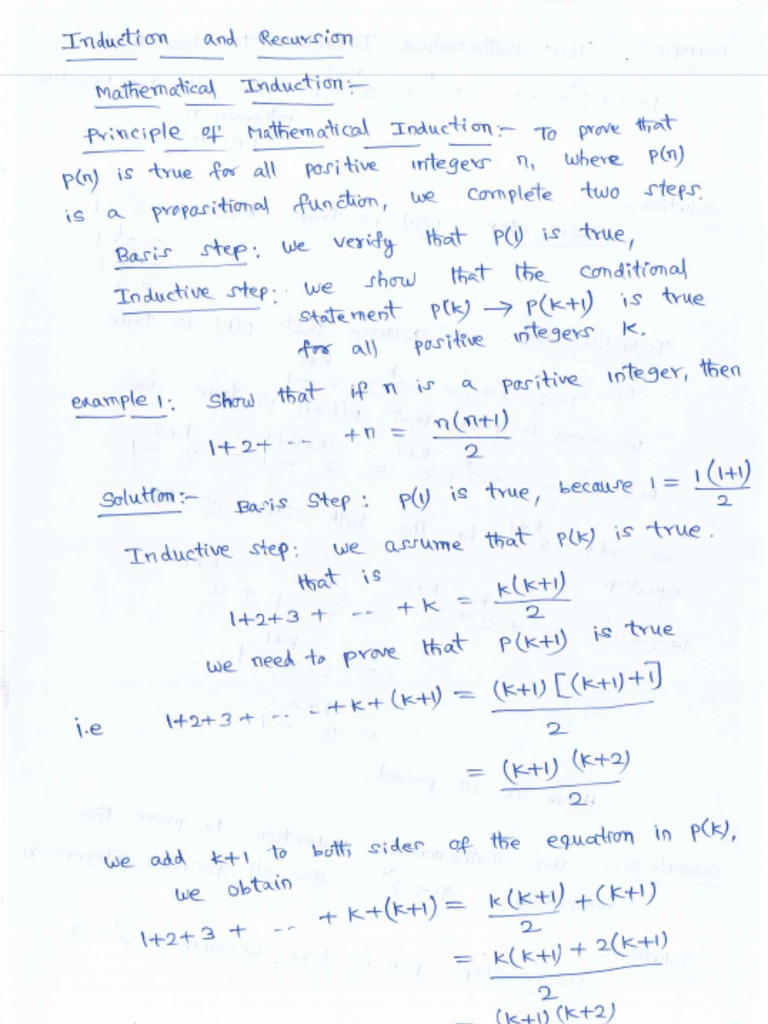 Induction and Recursion
Mathematical Induction:-
Principle of Mathematical Induction:- To prove that
P(n) is true for all positive integers n, where P(n)
is a propositional function, we complete two steps.
Basis step: we verify that P(1) is true,
Inductive step: we show that the conditional
statement P(k) → P(k+1) is true
for all positive integers k.
example 1: Show that if n is a positive integer, then
1+2+ ... +n = n(n+1)/2
Solution:- Basis Step: P(1) is true, because 1 = 1(1+1)/2
Inductive step: we assume that P(k) is true.
that is
1+2+3+ ... +k = k(k+1)/2
we need to prove that P(k+1) is true
i.e 1+2+3+ ... +k+(k+1) = (k+1)[(k+1)+1]/2
= (k+1)(k+2)/2
we add k+1 to both sides of the equation in P(k),
we obtain
1+2+3+ ... +k+(k+1) = k(k+1)/2 + (k+1)
= k(k+1)+2(k+1)/2
= (k+1)(k+2)